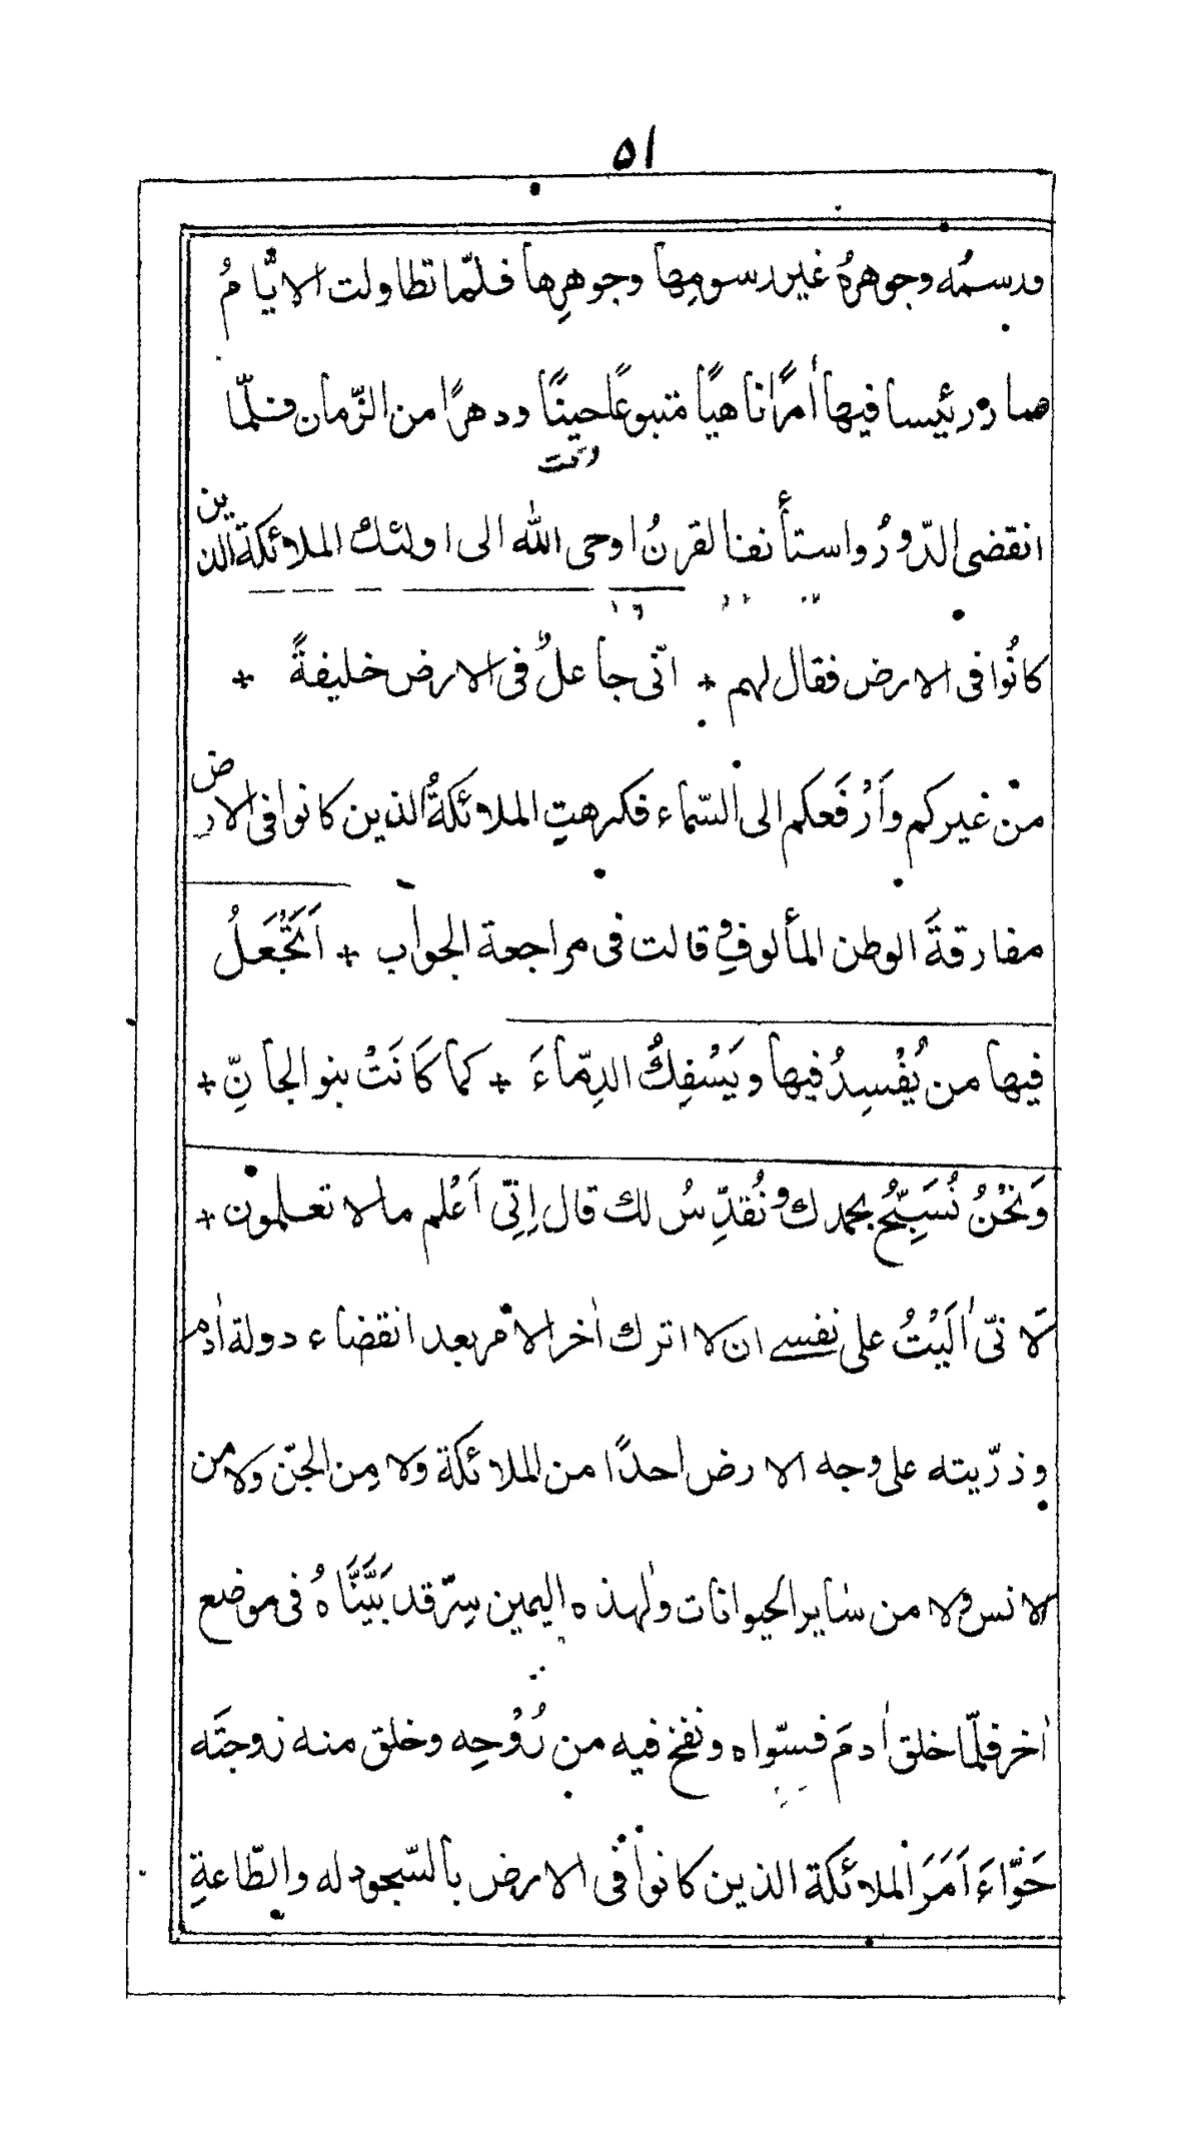 ٥١
ورسمُه وجوهرهُ غير رسومِها وجوهرِها فلمّا تطاولت الايّامُ
صار رئيسا فيها أمرًا ناهيًا متبوعًا حينًا ودهرًا من الزّمان فلمّا
انقضى الدّورُ واستأنف القرنُ اوحى الله الى اولئك الملائكة الذين
كانُوا فى الارض فقال لهم + انّى جاعلٌ فى الارض خليفةً +
منْ غيركم وأَرْفَعكم الى السّماء فكرهتِ الملائكةُ الذين كانوا فى الارض
مفارقةَ الوطن المألوفِ وقالت فى مراجعة الجواب + اَتَجْعَلُ
فيها من يُفْسِدُ فيها ويَسْفِكُ الدِمّاءَ + كما كَانَتْ بنو الجانِّ +
وَنَحْنُ نُسَبِّحُ بحمدك ونُقدِّسُ لك قال إنِّى اَعْلم مالا تعلمون +
لَانّى اٰلَيْتُ على نفسے ان لا اترك اٰخر الامر بعد انقضاء دولة اٰدم
وذرّيته على وجه الارض احدًا من الملائكة ولا مِن الجنّ ولا من
الانس ولا من سٰاير الحيوانات ولهٰذه اليمين سِرّ قد بَيَّنَّاهُ فى موضع
اٰخر فلمّا خلق اٰدمَ فسوّاه ونفخ فيه من رُوْحِه وخلق منه زوجتَه
حَوّاءَ اَمَرَ الملائكة الذين كانوا فى الارض بالسّجود له والطّاعةِ